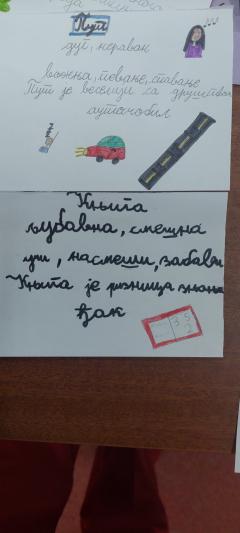 Пут
дуг, напоран
вожња, певање, спавање
Пут је веселији са друштвом
аутомобил
Књига
љубавна, смешна
учи, насмеши, забави
Књига је ризница знања
ђак
3 5
2